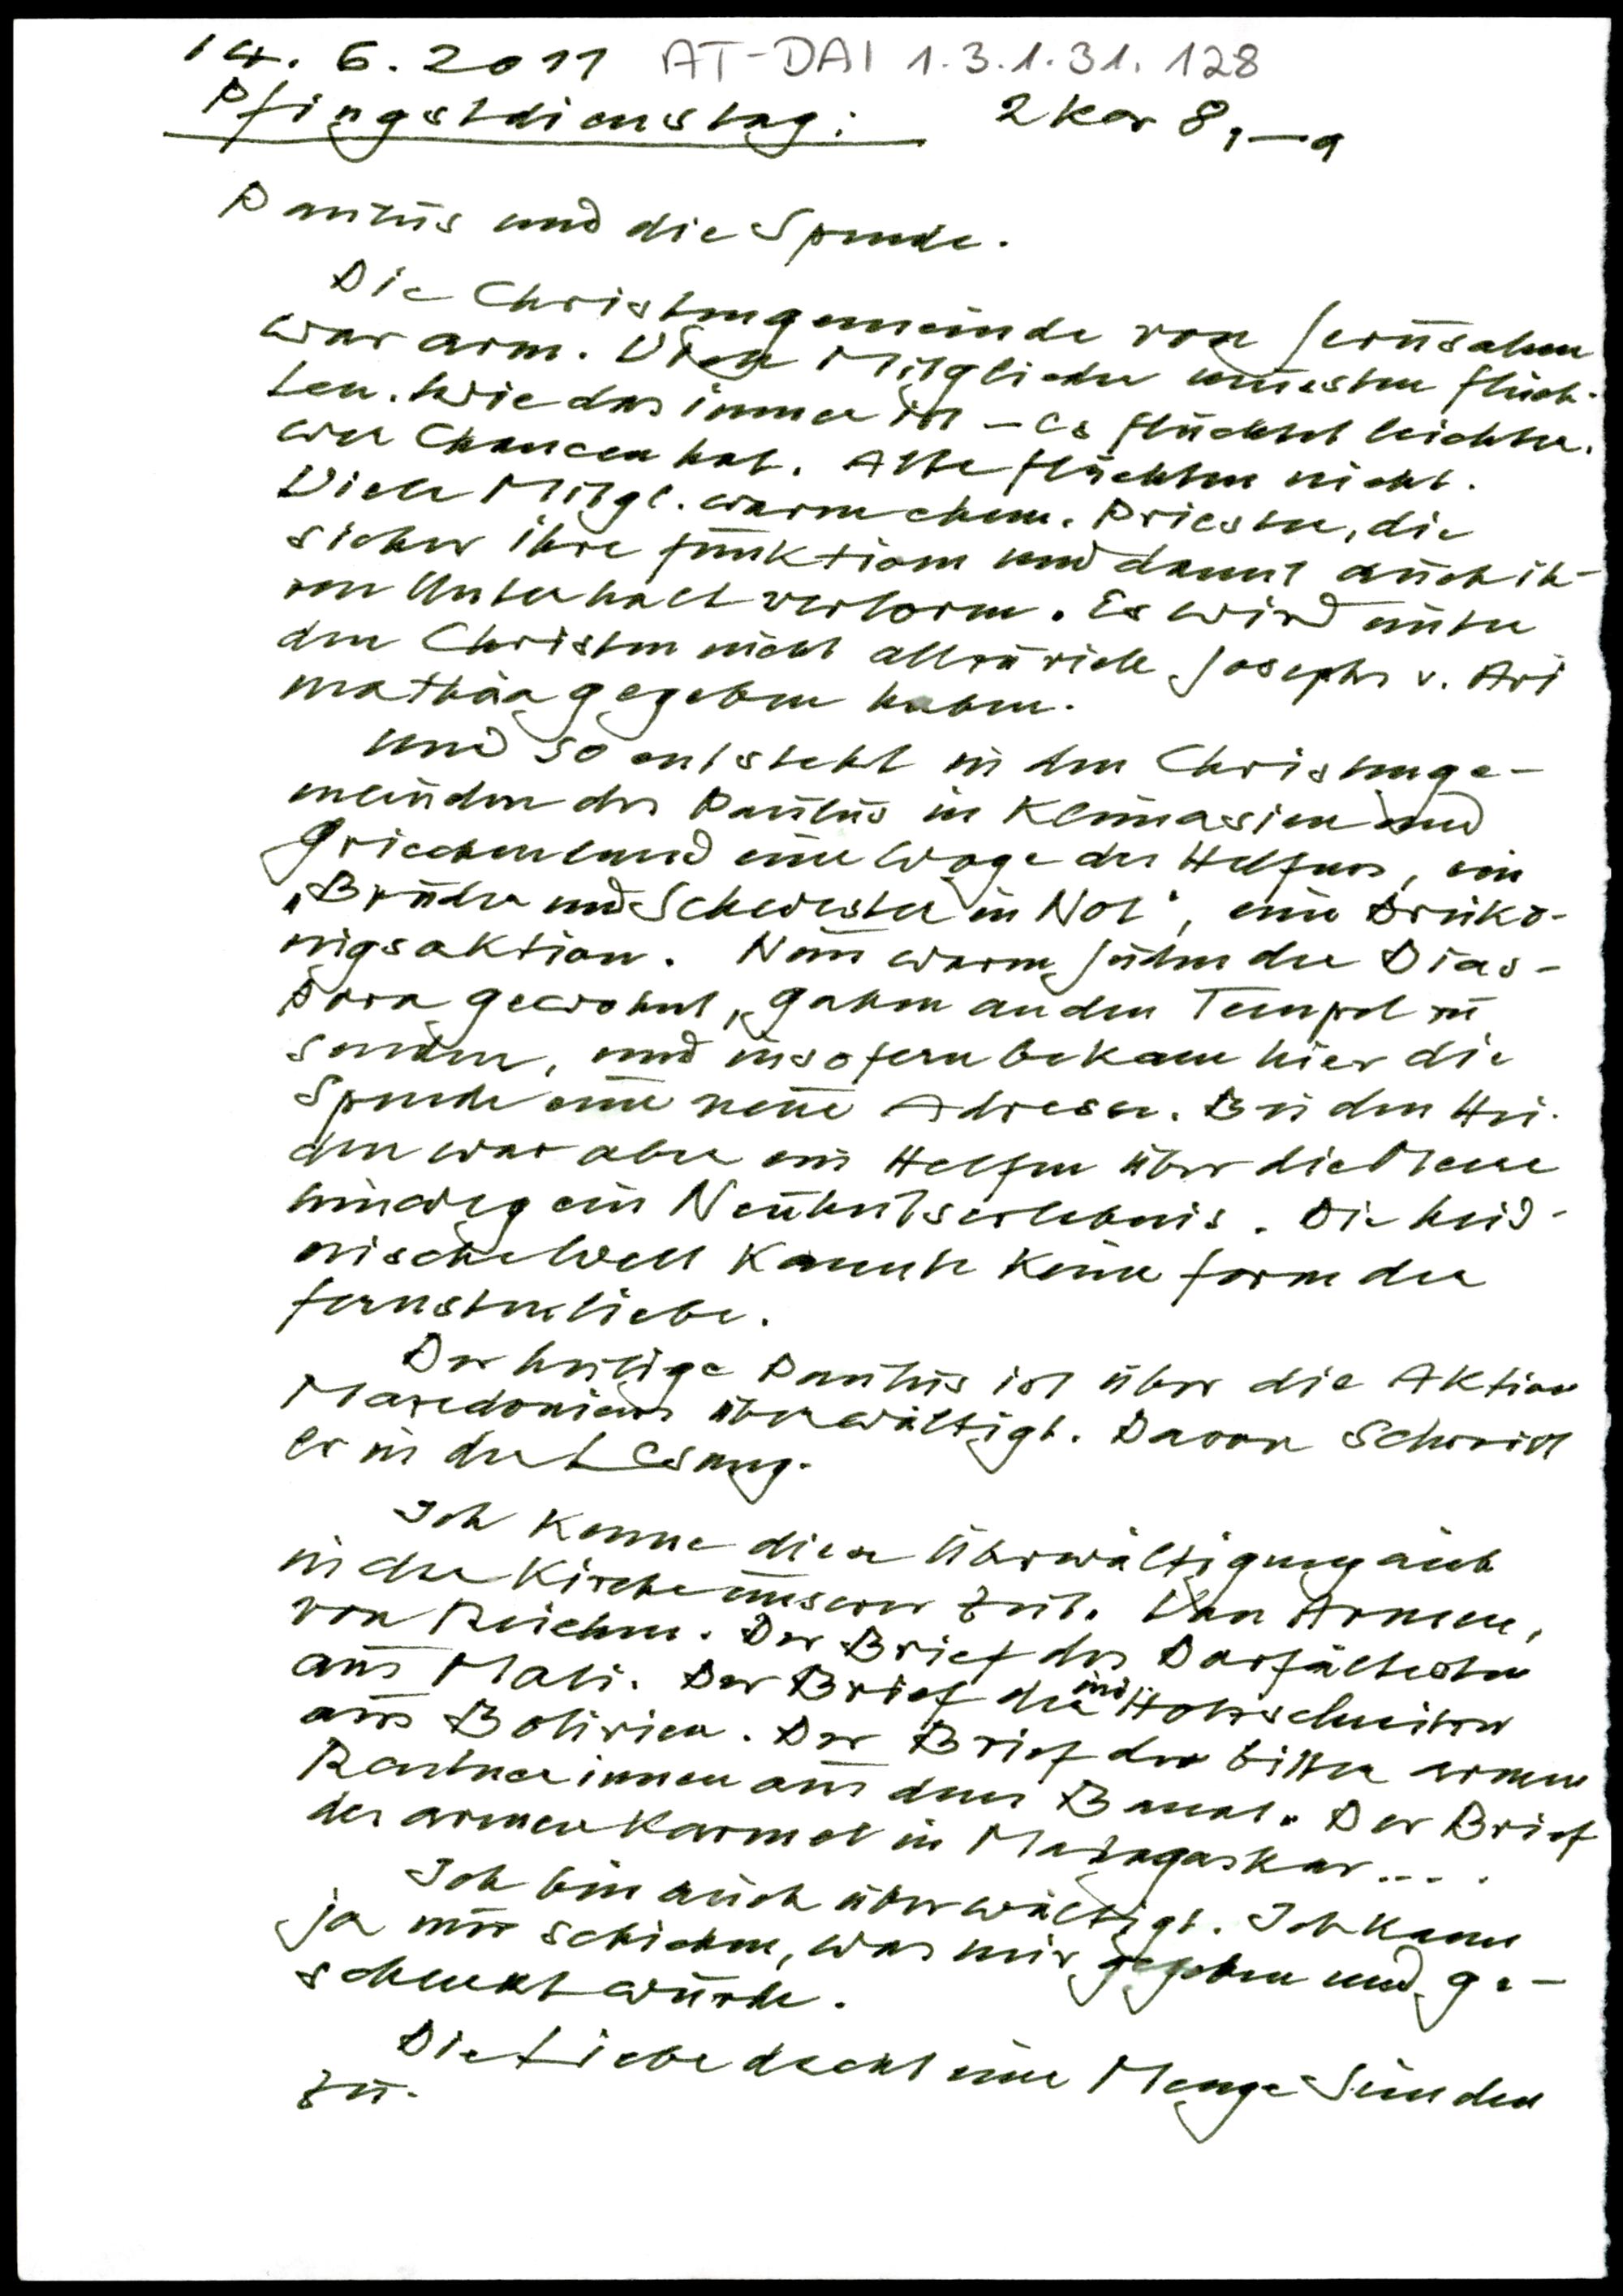 14. 6. 2011 AT-DAI 1.3.1.31.128
Pfingstdienstag: 2 Kor 8,1-9
Paulus und die Spende.
Die Christengemeinde von Jerusalem
war arm. Viele Mitglieder mussten flüch-
ten. Wie das immer ist – es flüchtet leichter,
wer Chancen hat. Alte flüchten nicht.
Viele Mitgl. waren ehem. Priester, die
sicher ihre Funktion und damit auch ih-
ren Unterhalt verloren. Es wird unter
den Christen nicht allzu viele Josephs v. Ari
mathäa gegeben haben.
Und so entsteht in den Christenge-
meinden des Paulus in Kleinasien und
Griechenland eine Woge des Helfens, ein
„Bruder und Schwester in Not“, eine Dreikö-
nigsaktion. Nun waren Juden der Dias-
pora gewohnt, Gaben an den Tempel zu
senden, und insofern bekam hier die
Spende eine neue Adresse. Bei den Hei-
den war aber ein Helfen über die Meere
hinweg ein Neuheitserlebnis. Die heid-
nische Welt kannte keine Form der
Fernstenliebe.
Der heilige Paulus ist über die Aktion
Mazedoniens überwältigt. Davon schreibt
er in der Lesung.
Ich kenne diese Überwältigung auch
in der Kirche unserer Zeit. Von Armen,
von Reichen. Der Brief des Dorfältesten
aus Mali. Der Brief der ind. Holzschneider
aus Bolivien. Der Brief der bitter armen
Rentnerinnen aus dem Banat. Der Brief
des armen Karmel in Madagaskar....
Ich bin auch überwältigt. Ich kann
ja nur schicken, was mir gegeben und ge-
schenkt wurde.
Die Liebe deckt eine Menge Sünden
zu.